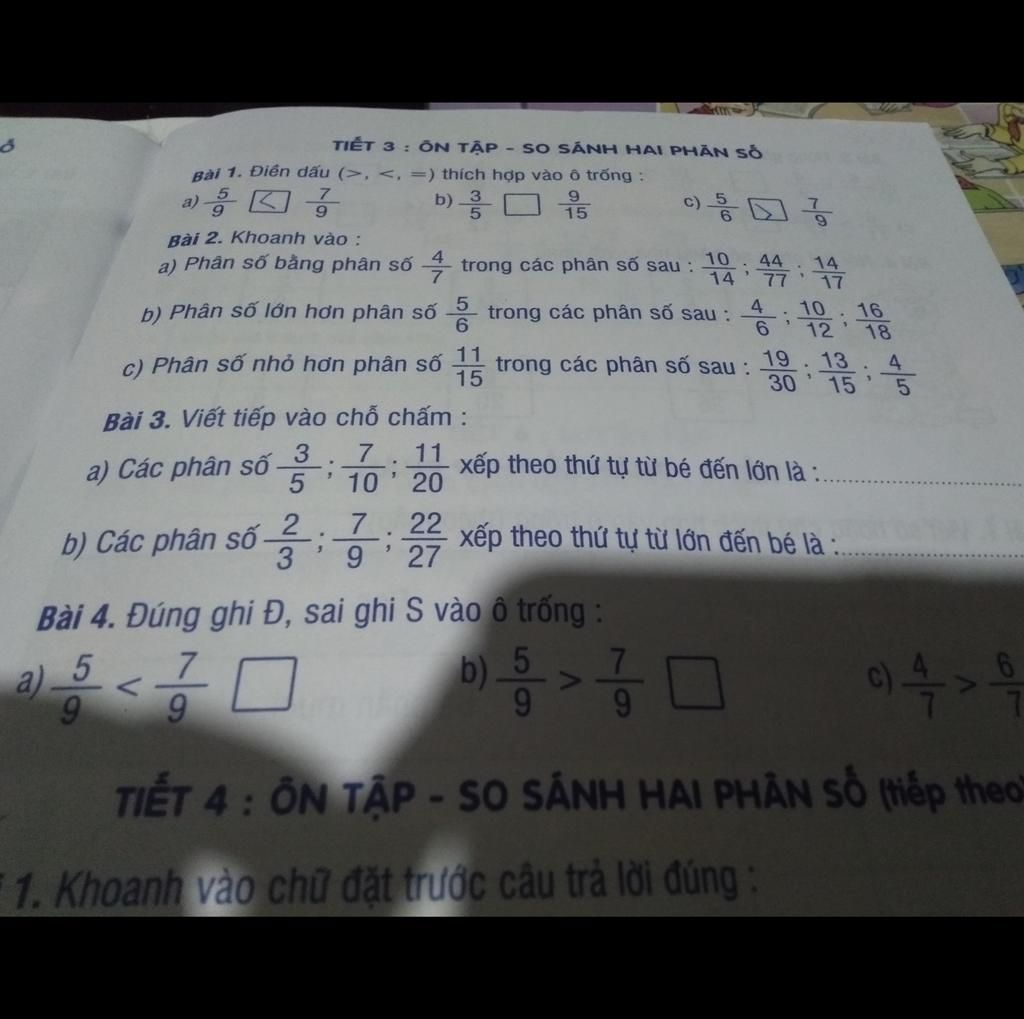 TIẾT 3 : ÔN TẬP - SO SÁNH HAI PHÂN SỐ
Bài 1. Điền dấu (>, <, =) thích hợp vào ô trống :
a) 5/9 < 7/9 b) 3/5 □ 9/15 c) 5/6 > 7/9
Bài 2. Khoanh vào :
a) Phân số bằng phân số 4/7 trong các phân số sau : 10/14 ; 44/77 ; 14/17
b) Phân số lớn hơn phân số 5/6 trong các phân số sau : 4/6 ; 10/12 ; 16/18
c) Phân số nhỏ hơn phân số 11/15 trong các phân số sau : 19/30 ; 13/15 ; 4/5
Bài 3. Viết tiếp vào chỗ chấm :
a) Các phân số 3/5 ; 7/10 ; 11/20 xếp theo thứ tự từ bé đến lớn là :....................
b) Các phân số 2/3 ; 7/9 ; 22/27 xếp theo thứ tự từ lớn đến bé là :....................
Bài 4. Đúng ghi Đ, sai ghi S vào ô trống :
a) 5/9 < 7/9 □ b) 5/9 > 7/9 □ c) 4/7 > 6/7
TIẾT 4 : ÔN TẬP - SO SÁNH HAI PHÂN SỐ (tiếp theo)
1. Khoanh vào chữ đặt trước câu trả lời đúng :